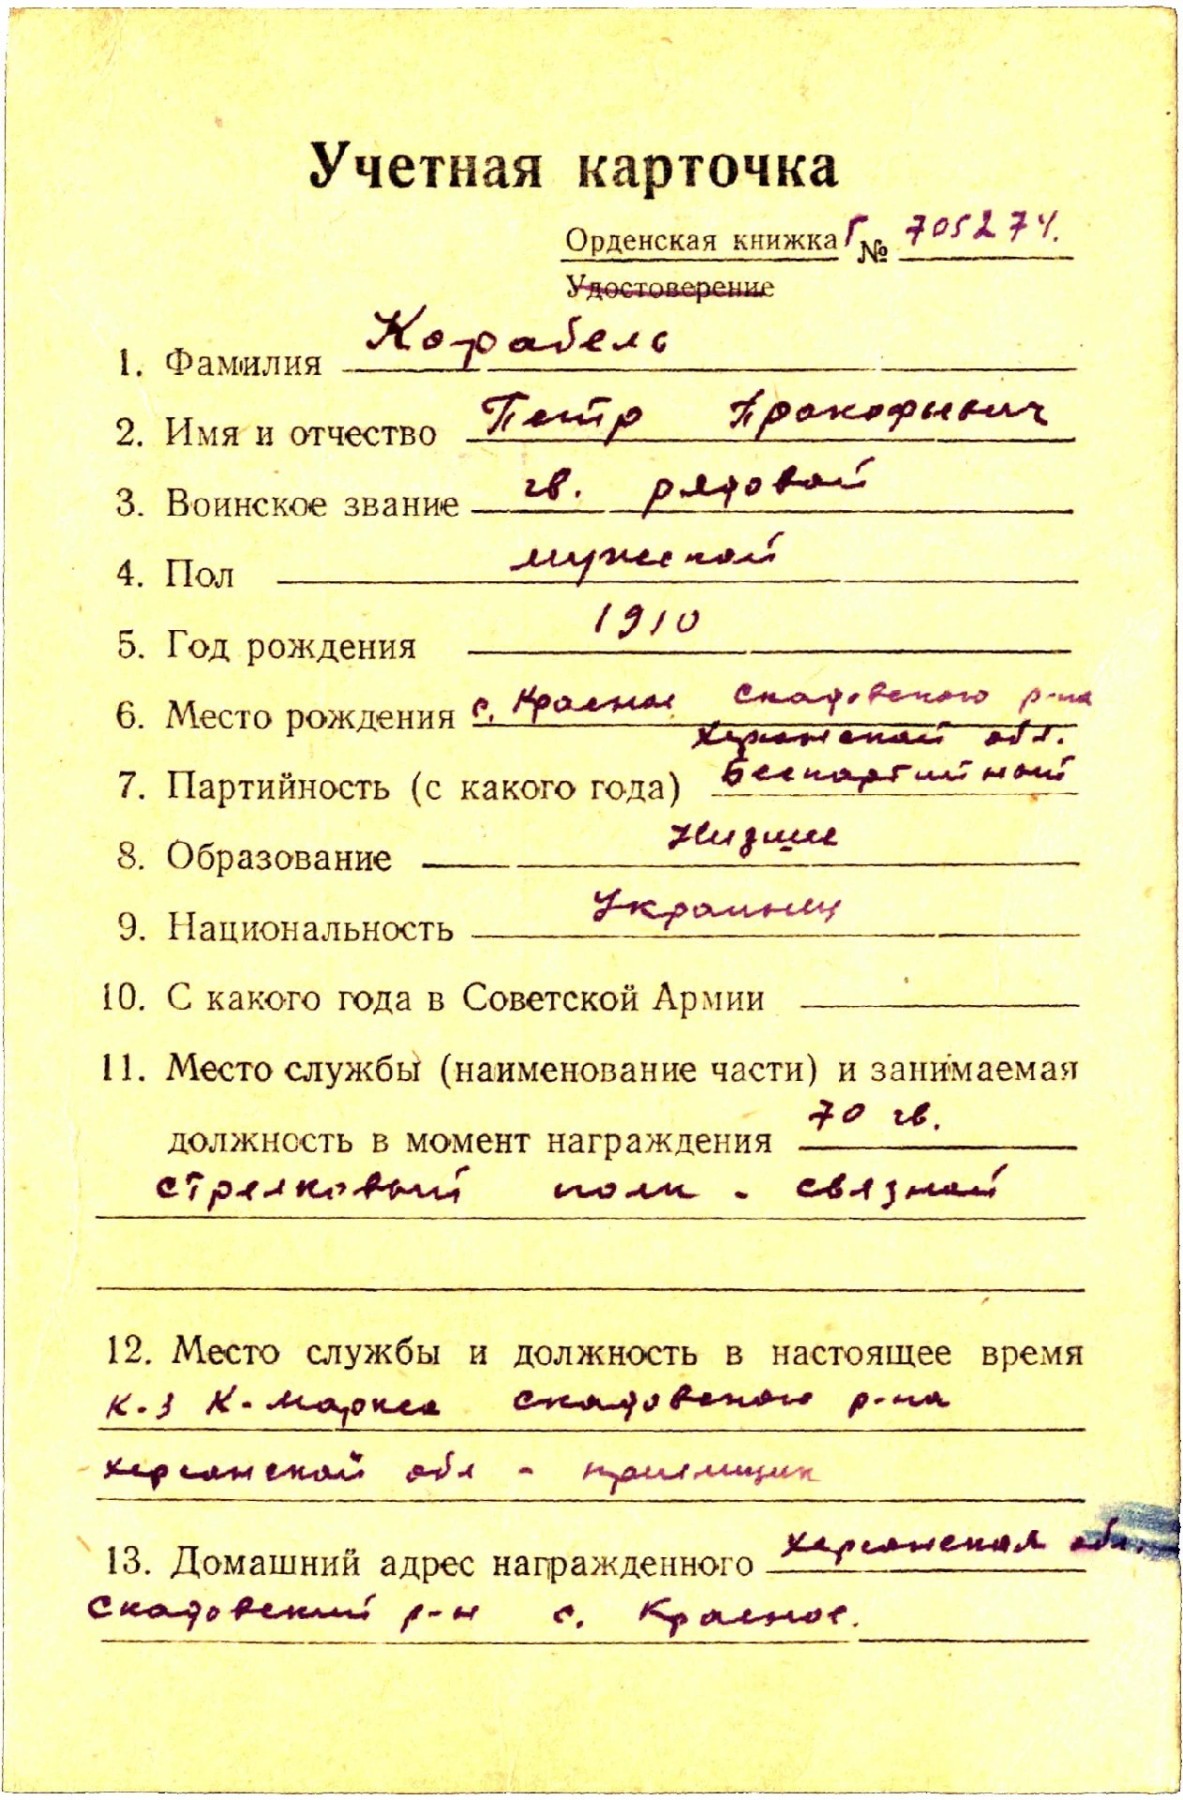 Учетная карточка
Орденская книжка Г № 705274.
Удостоверение
1. Фамилия Корабель
2. Имя и отчество Петр Прокофьевич
3. Воинское звание гв. рядовой
4. Пол мужской
5. Год рождения 1910
6. Место рождения с. Красное Скадовского р-на
Херсонской обл.
7. Партийность (с какого года) Беспартийный
8. Образование Низшее
9. Национальность Украинец
10. С какого года в Советской Армии
11. Место службы (наименование части) и занимаемая
должность в момент награждения 70 гв.
стрелковый полк - связной
12. Место службы и должность в настоящее время
к-з К-Маркса Скадовского р-на
Херсонской обл - приемщик
13. Домашний адрес награжденного Херсонская обл.
Скадовский р-н с. Красное.